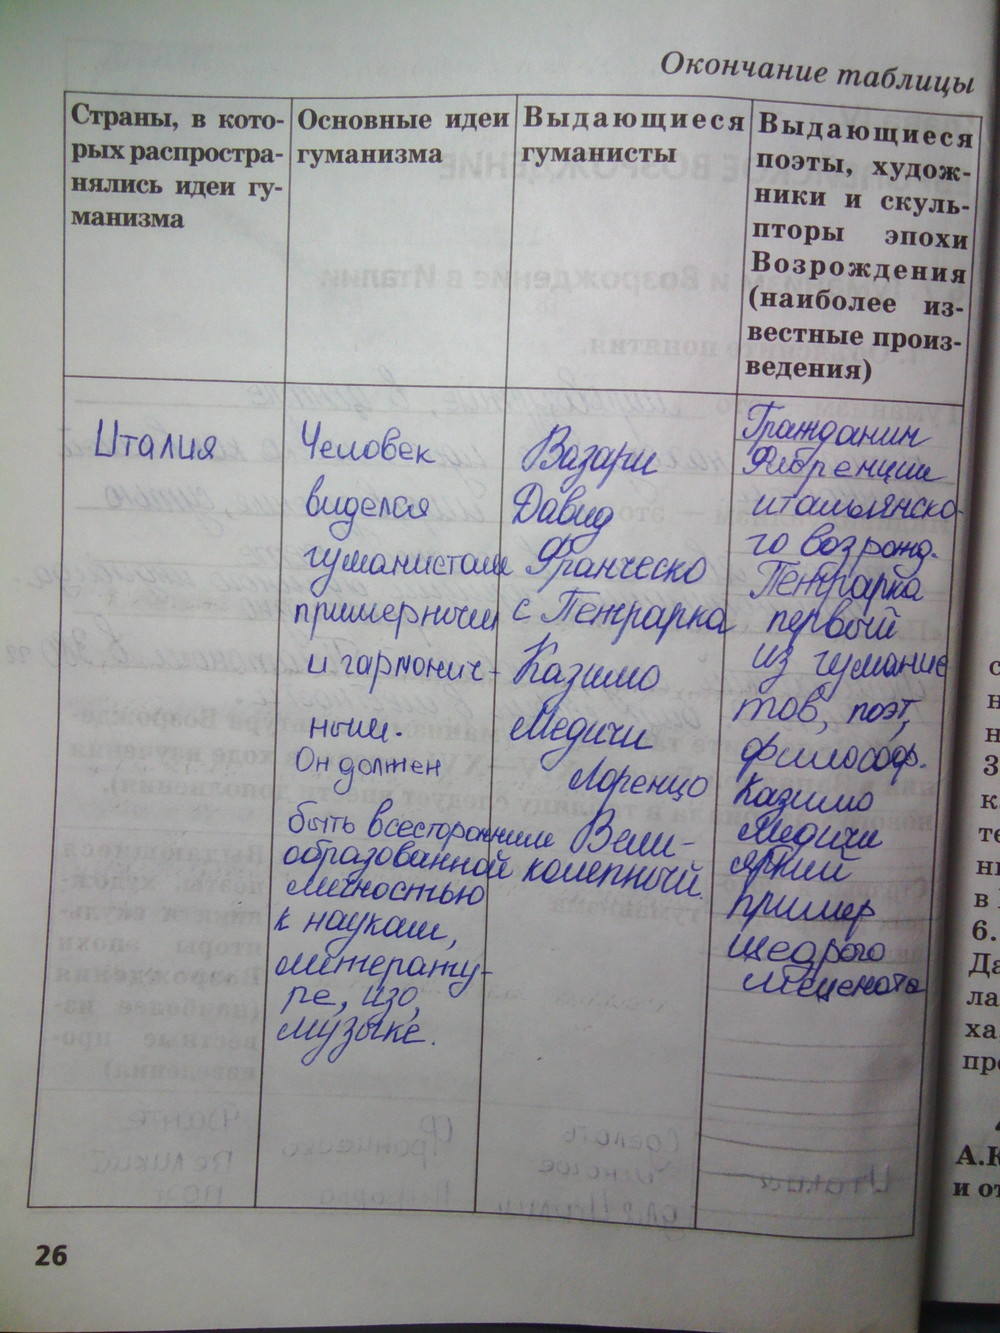 Окончание таблицы
Страны, в кото-
рых распростра-
нялись идеи гу-
манизма
Основные идеи
гуманизма
Выдающиеся
гуманисты
Выдающиеся
поэты, худож-
ники и скуль-
пторы эпохи
Возрождения
(наиболее из-
вестные произ-
ведения)
Италия
Человек
виделся
гуманистам
примерным
и гармонич-
ным.
Он должен
быть всесторонним
образованной
личностью
к наукам,
литерату-
ре, изо,
музыке.
Вазари
Давид
Франческо
с Петрарка
Казимо
Медичи
Лоренцо
Вели-
колепный
Гражданин
Флоренции
итальянско-
го возрожд.
Петрарка
первый
из гуманис
тов, поэт,
философ.
Казимо
Медичи
яркий
пример
щедрого
мецената
26
6.
Да
ла
ха
про
А.К
и от